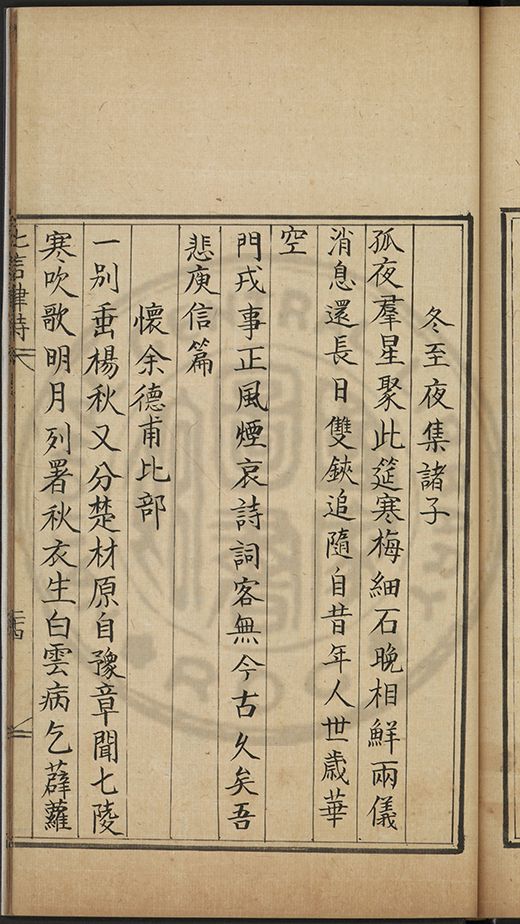 冬至夜集諸子
孤夜羣星聚此筵寒梅細石晚相鮮兩儀
消息還長日雙鋏追隨自昔年人世歲華
空
門戎事正風煙哀詩詞客無今古久矣吾
悲庾信篇
懷余德甫比部
一別垂楊秋又分楚材原自豫章聞七陵
寒吹歌明月列署秋衣生白雲病乞薜蘿
七言律詩